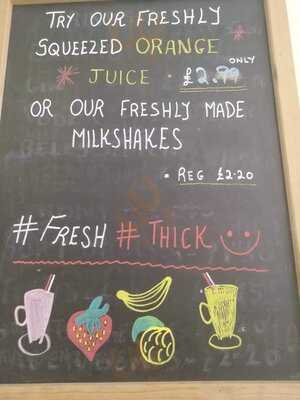 TRY OUR FRESHLY
SQUEEZED ORANGE
JUICE · £2.99 ONLY
OR OUR FRESHLY MADE
MILKSHAKES
· REG £2·20
#FRESH #THICK